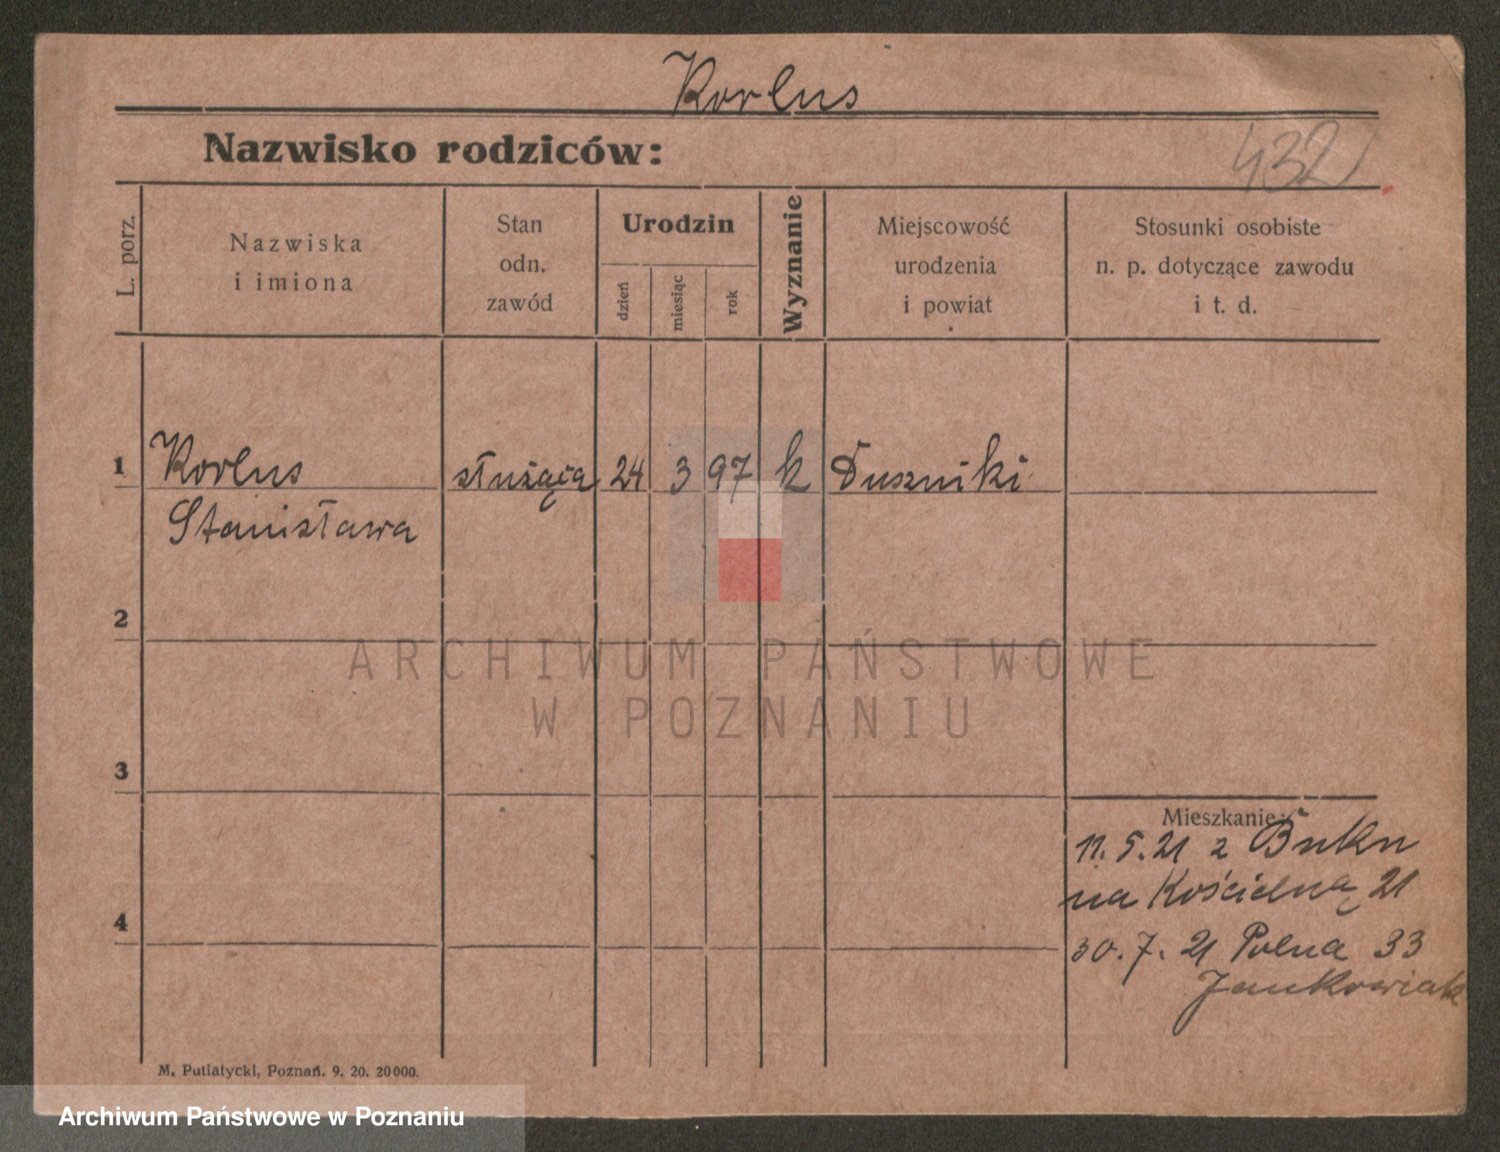 Korlus
Nazwisko rodziców:
432
L. porz.
Nazwiska
i imiona
Stan
odn.
zawód
Urodzin
dzień
miesiąc
rok
Wyznanie
Miejscowość
urodzenia
i powiat
Stosunki osobiste
n. p. dotyczące zawodu
i t. d.
1 Korlus służąca 24 3 97 k Duszniki
Stanisława
2
ARCHIWUM PAŃSTWOWE
W POZNANIU
3
Mieszkanie:
11. 5. 21 z Buku
na Kościelną 21
4
30. 7. 21 Polna 33
Jankowiak
M. Putiatycki, Poznań. 9. 20. 20000.
Archiwum Państwowe w Poznaniu